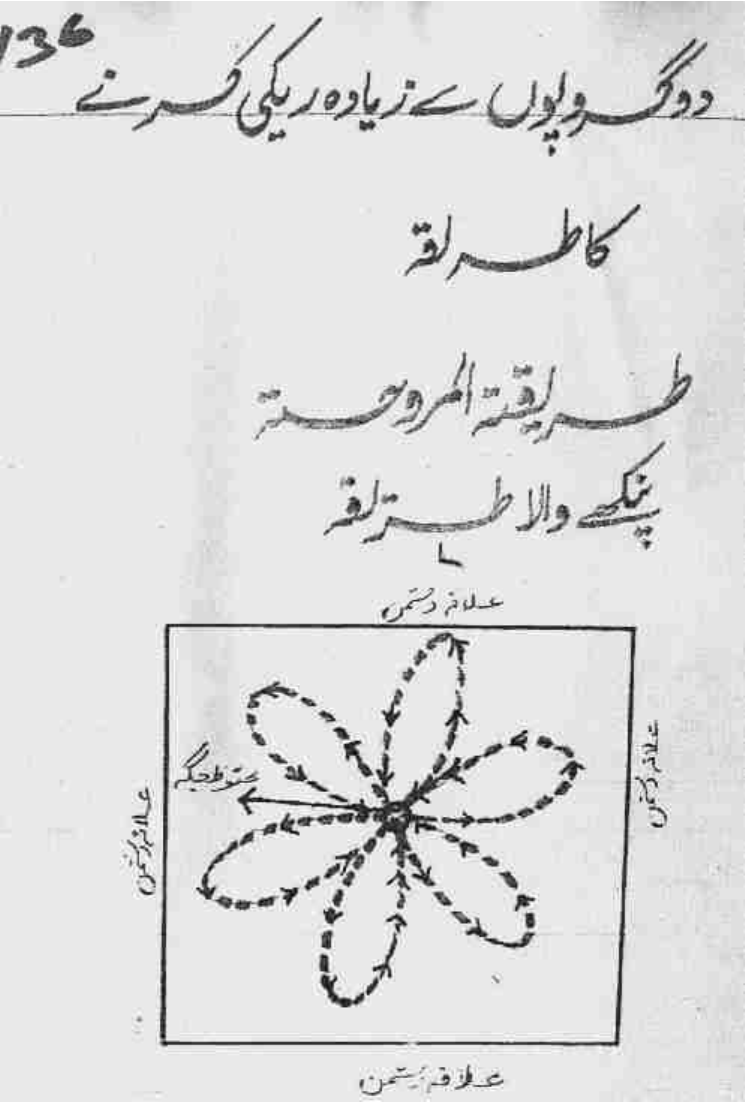 136
دو گروپوں سے زیادہ ریکی کرنے
کا طریقہ
طریقتہ المروحتہ
پنکھے والا طریقہ
علاقہ دشمن
علاقہ دشمن
جگہ
علاقہ دشمن
علاقہ دشمن